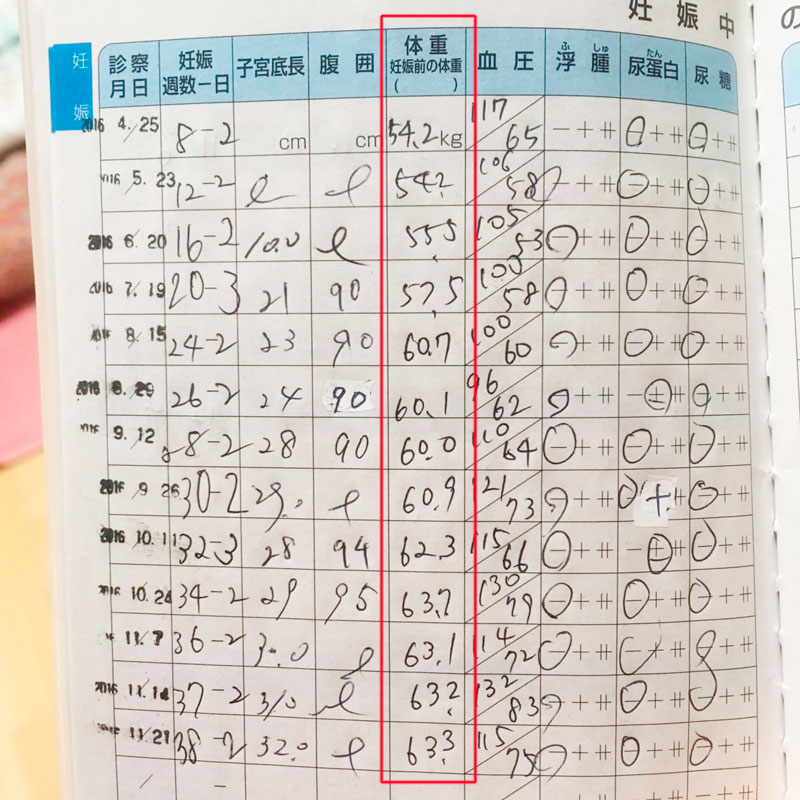 妊娠中
の
妊娠
診察月日 妊娠週数−日 子宮底長 腹囲 体重 妊娠前の体重( ) 血圧 浮腫 ふ しゅ 尿蛋白 たん 尿糖
2016 4.25 8-2 cm cm 54.2kg 117/65 − + ⧺ − + ⧺ − + ⧺
2016 5.23 12-2 54.2 106/58 − + ⧺ − + ⧺ − + ⧺
2016 6.20 16-2 10.0 55.5 105/53 − + ⧺ − + ⧺ − + ⧺
2016 7.19 20-3 21 90 57.5 100/58 − + ⧺ − + ⧺ − + ⧺
8.15 24-2 23 90 60.7 100/60 − + ⧺ − + ⧺ − + ⧺
2016 8.29 26-2 24 90 60.1 96/62 − + ⧺ − ± ⧺ − + ⧺
9.12 28-2 28 90 60.0 110/64 − + ⧺ − + ⧺ − + ⧺
2016 9.26 30-2 29.0 60.9 121/73 − + ⧺ + ⧺ − + ⧺
2016 10.11 32-3 28 94 62.3 115/66 − + ⧺ − ± ⧺ − + ⧺
2016 10.24 34-2 29 95 63.7 130/79 − + ⧺ − + ⧺ − + ⧺
11.7 36-2 30.0 63.1 114/72 − + ⧺ − + ⧺ − + ⧺
2016 11.14 37-2 31.0 63.2 132/83 − + ⧺ − + ⧺ − + ⧺
11.21 38-2 32.0 63.3 115/75 − + ⧺ − + ⧺ − + ⧺